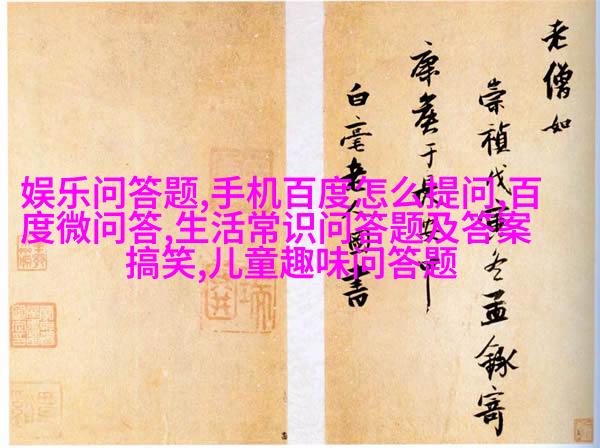 娱乐问答题,手机百度怎么提问,百
度微问答,生活常识问答题及答案
搞笑,儿童趣味问答题
老僧如
崇禎戊冬孟錄寄
康侯于長安中
白毫老人圖書